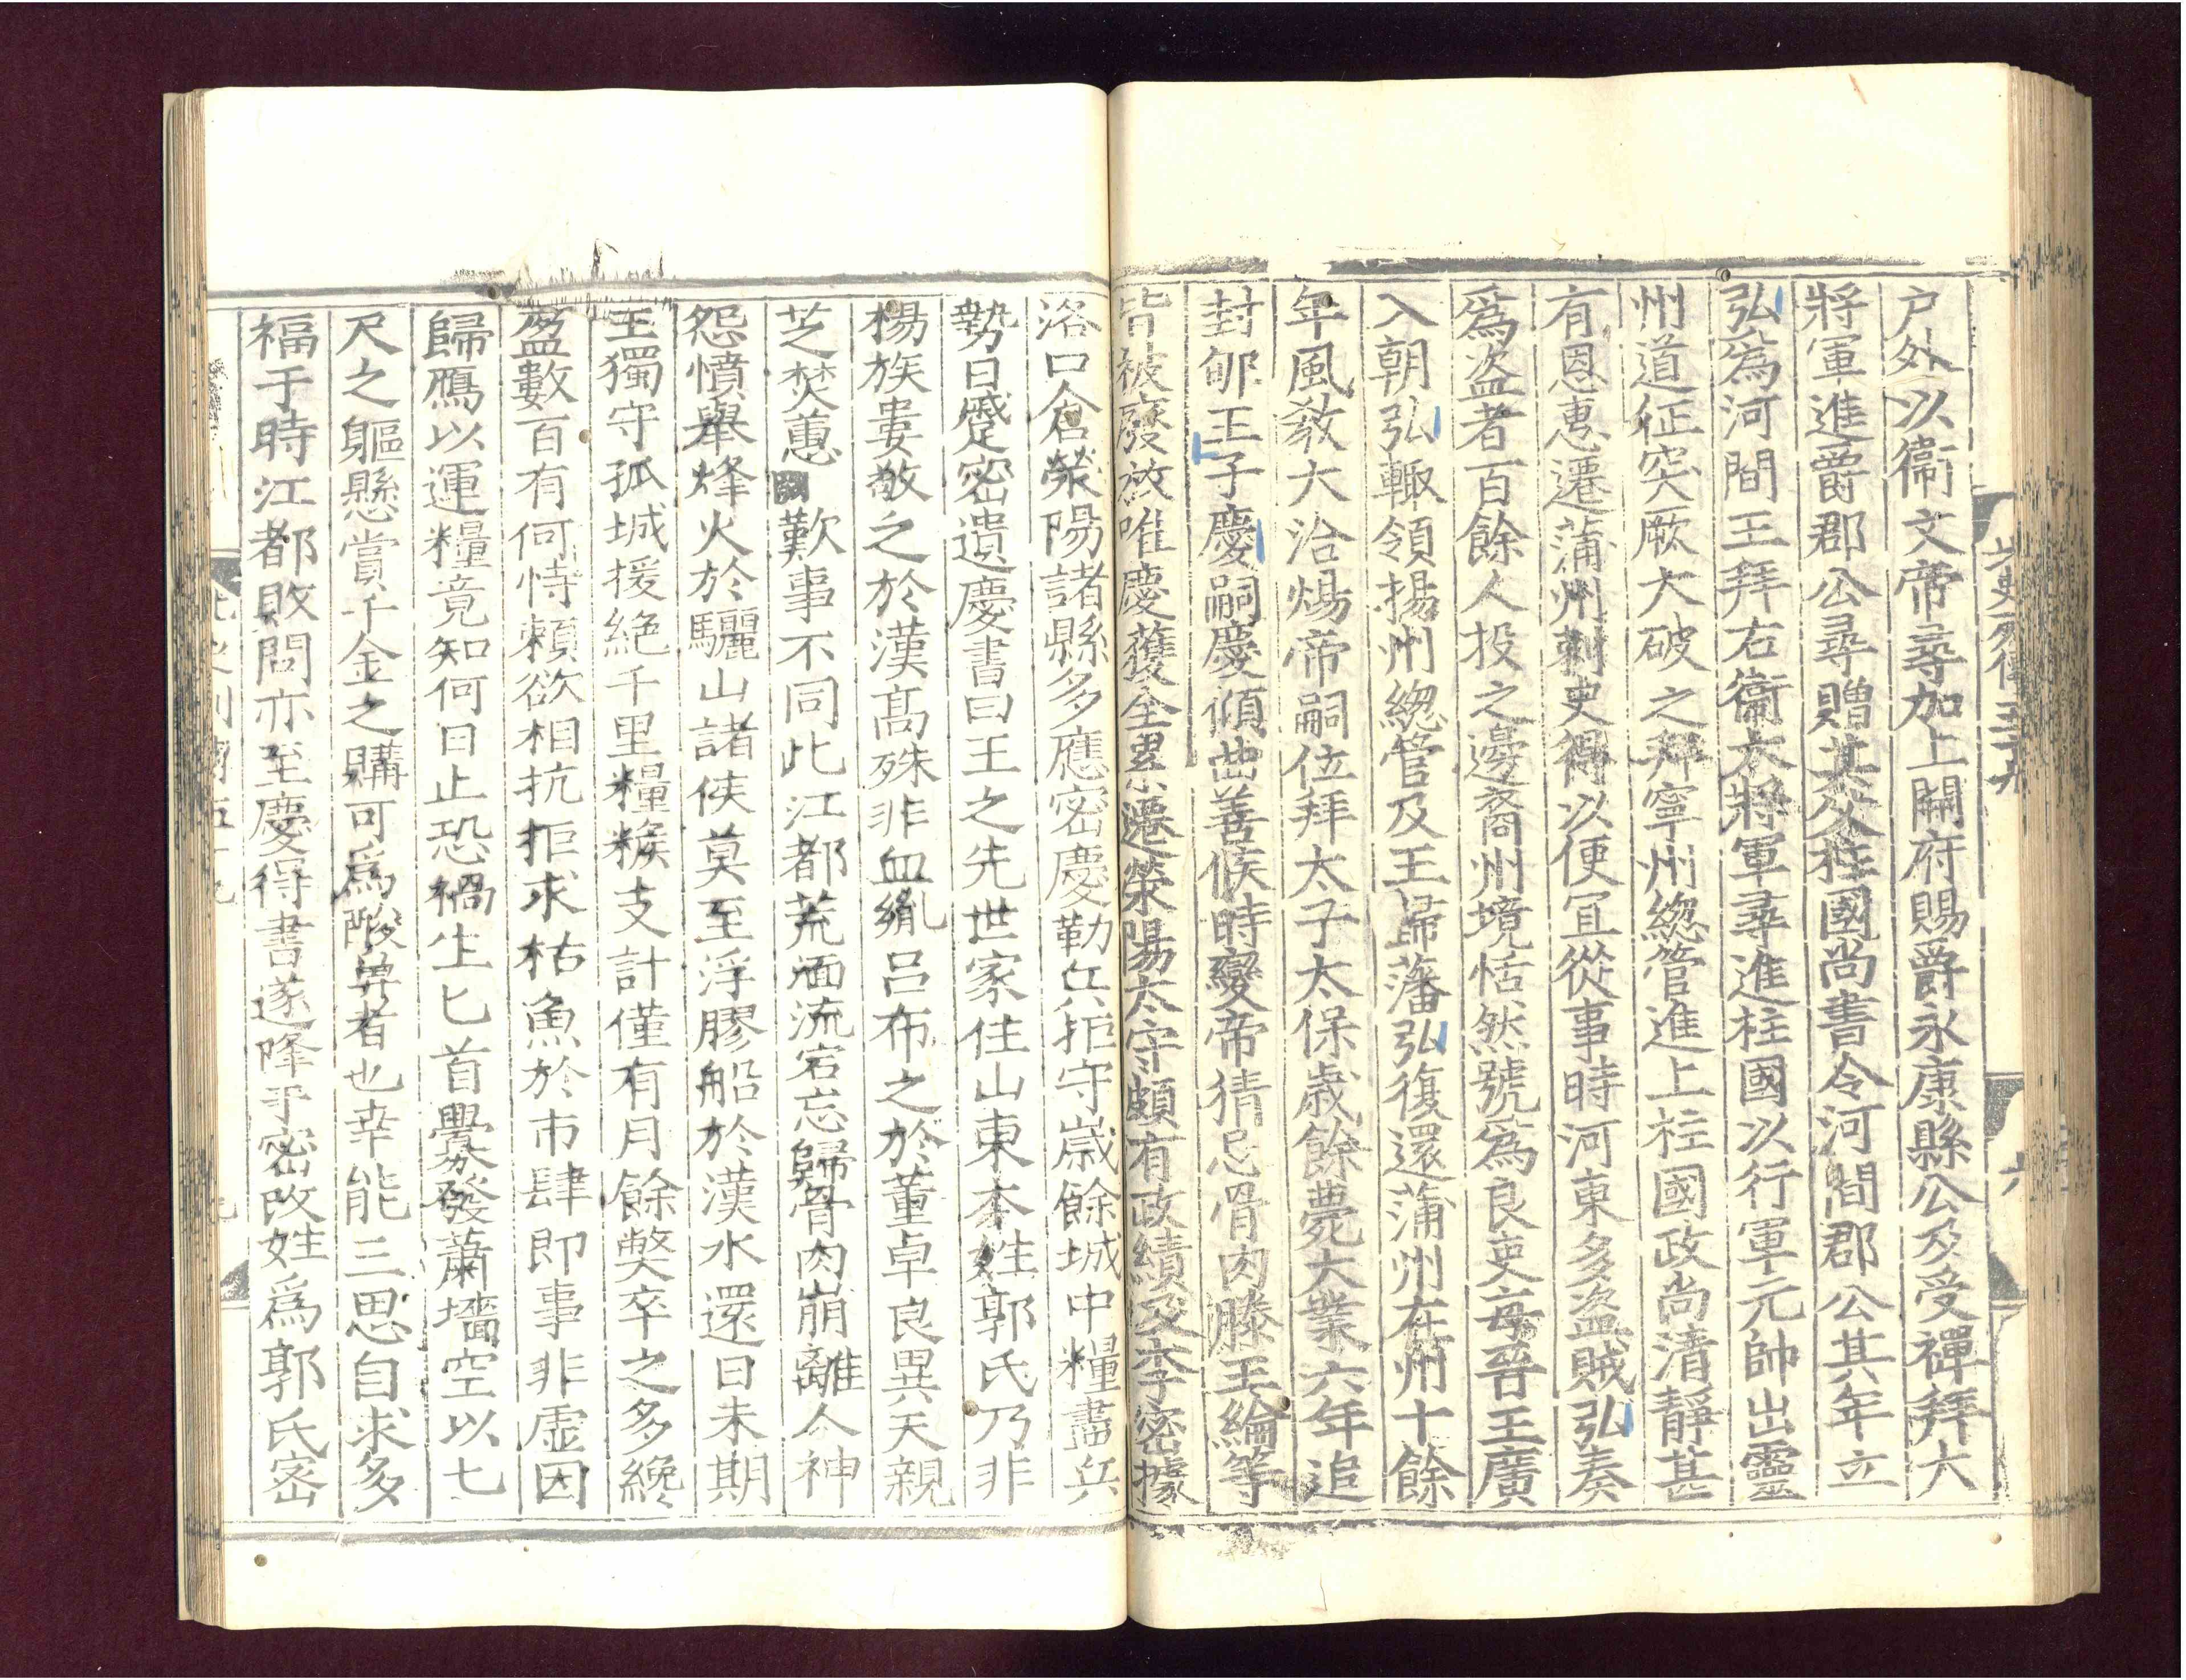 北史列傳五十九
六
户外以衞文帝尋加上開府賜爵永康縣公及受禪拜大
將軍進爵郡公尋贈其父柱國尚書令河間郡公其年立
弘爲河間王拜右衞大將軍尋進柱國以行軍元帥出靈
州道征突厥大破之拜寧州緫管進上柱國政尚清靜甚
有恩惠遷蒲州刺史得以便宜從事時河東多盗賊弘奏
爲盗者百餘人投之邊裔州境恬然號爲良吏每晉王廣
入朝弘輙領揚州緫管及王歸藩弘復還蒲州在州十餘
年風敎大洽煬帝嗣位拜太子太保歲餘薨大業六年追
封郇王子慶嗣慶傾曲善候時變帝猜忌骨肉滕王綸等
皆被廢放唯慶獲全累遷滎陽太守頗有政績及李密據
洛口倉滎陽諸縣多應密慶勒兵拒守歲餘城中糧盡兵
勢日蹙密遺慶書曰王之先世家住山東本姓郭氏乃非
楊族婁敬之於漢髙殊非血胤吕布之於董卓良異天親
芝焚蕙歎事不同此江都荒湎流宕忘歸骨肉崩離人神
怨憤舉烽火於驪山諸侯莫至浮膠船於漢水還日未期
王獨守孤城援絶千里糧糇支計僅有月餘弊卒之多纔
盈數百有何恃頼欲相抗拒求枯魚於市肆即事非虛因
歸鴈以運糧竟知何日止恐禍生匕首釁發蕭墻空以七
尺之軀懸賞千金之購可爲酸鼻者也幸能三思自求多
福于時江都敗問亦至慶得書遂降乎密改姓爲郭氏密